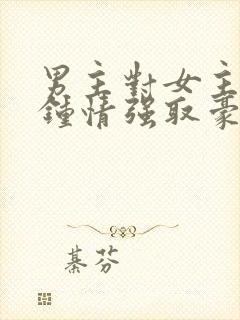 男主對女主
鍾情強取豪
綦芬